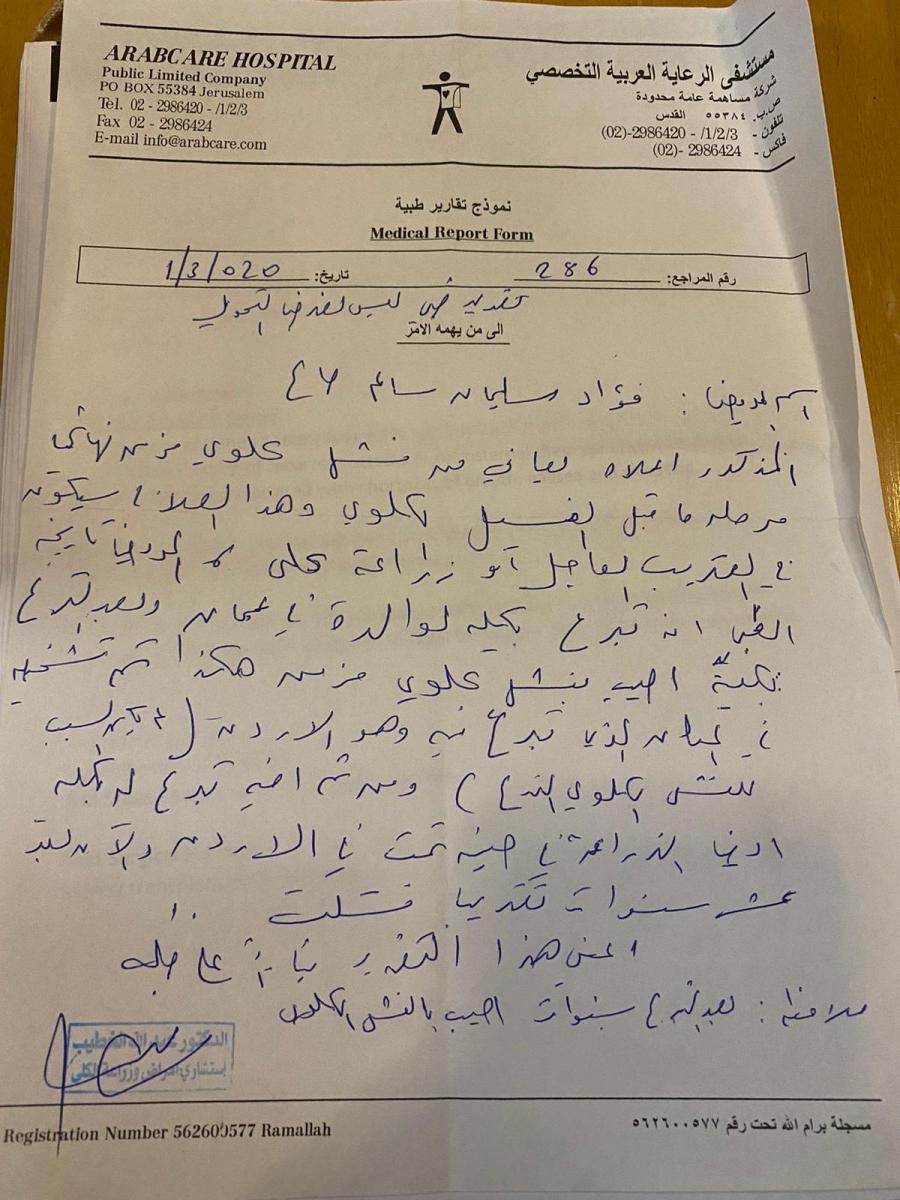 ARABCARE HOSPITAL
Public Limited Company
PO BOX 55384 Jerusalem
Tel. 02 - 2986420 - /1/2/3
Fax 02 - 2986424
E-mail info@arabcare.com
مستشفى الرعاية العربية التخصصي
شركة مساهمة عامة محدودة
ص.ب. ٥٥٣٨٤ القدس
تلفون - (02)-2986420 - /1/2/3
فاكس - (02)- 2986424
نموذج تقارير طبية
Medical Report Form
رقم المراجع: 286 تاريخ: 1/3/020
تقرير طبي ليس لغرض التحويل
الى من يهمه الامر
اسم المريض: فؤاد سليمان سالم
المذكور اعلاه يعاني من فشل كلوي مزمن نهائي
مرحلة ما قبل الغسيل الكلوي وهذا العلاج سيكون
في القريب العاجل أو زراعة كلى المريض تاريخه
الطبي انه تبرع بكلية لوالده في عمان وبعد التبرع
بكلية اصيب بفشل كلوي مزمن هكذا تم تشخيصه
في المكان الذي تبرع فيه وهو الاردن (لم يكن سبب
للفشل الكلوي التبرع) ومن ثم اخيه تبرع له بكلية
ايضا الزراعة في حينه تمت في الاردن والآن بعد
عشر سنوات تقريبا فشلت
اعطي هذا التقرير بناء على طلبه
ملاحظة: بعد التبرع بسنوات اصيب بالفشل الكلوي
الدكتور عبد الله الخطيب
إستشاري امراض وزراعة الكلى
Registration Number 562600577 Ramallah
مسجلة برام الله تحت رقم ٥٦٢٦٠٠٥٧٧